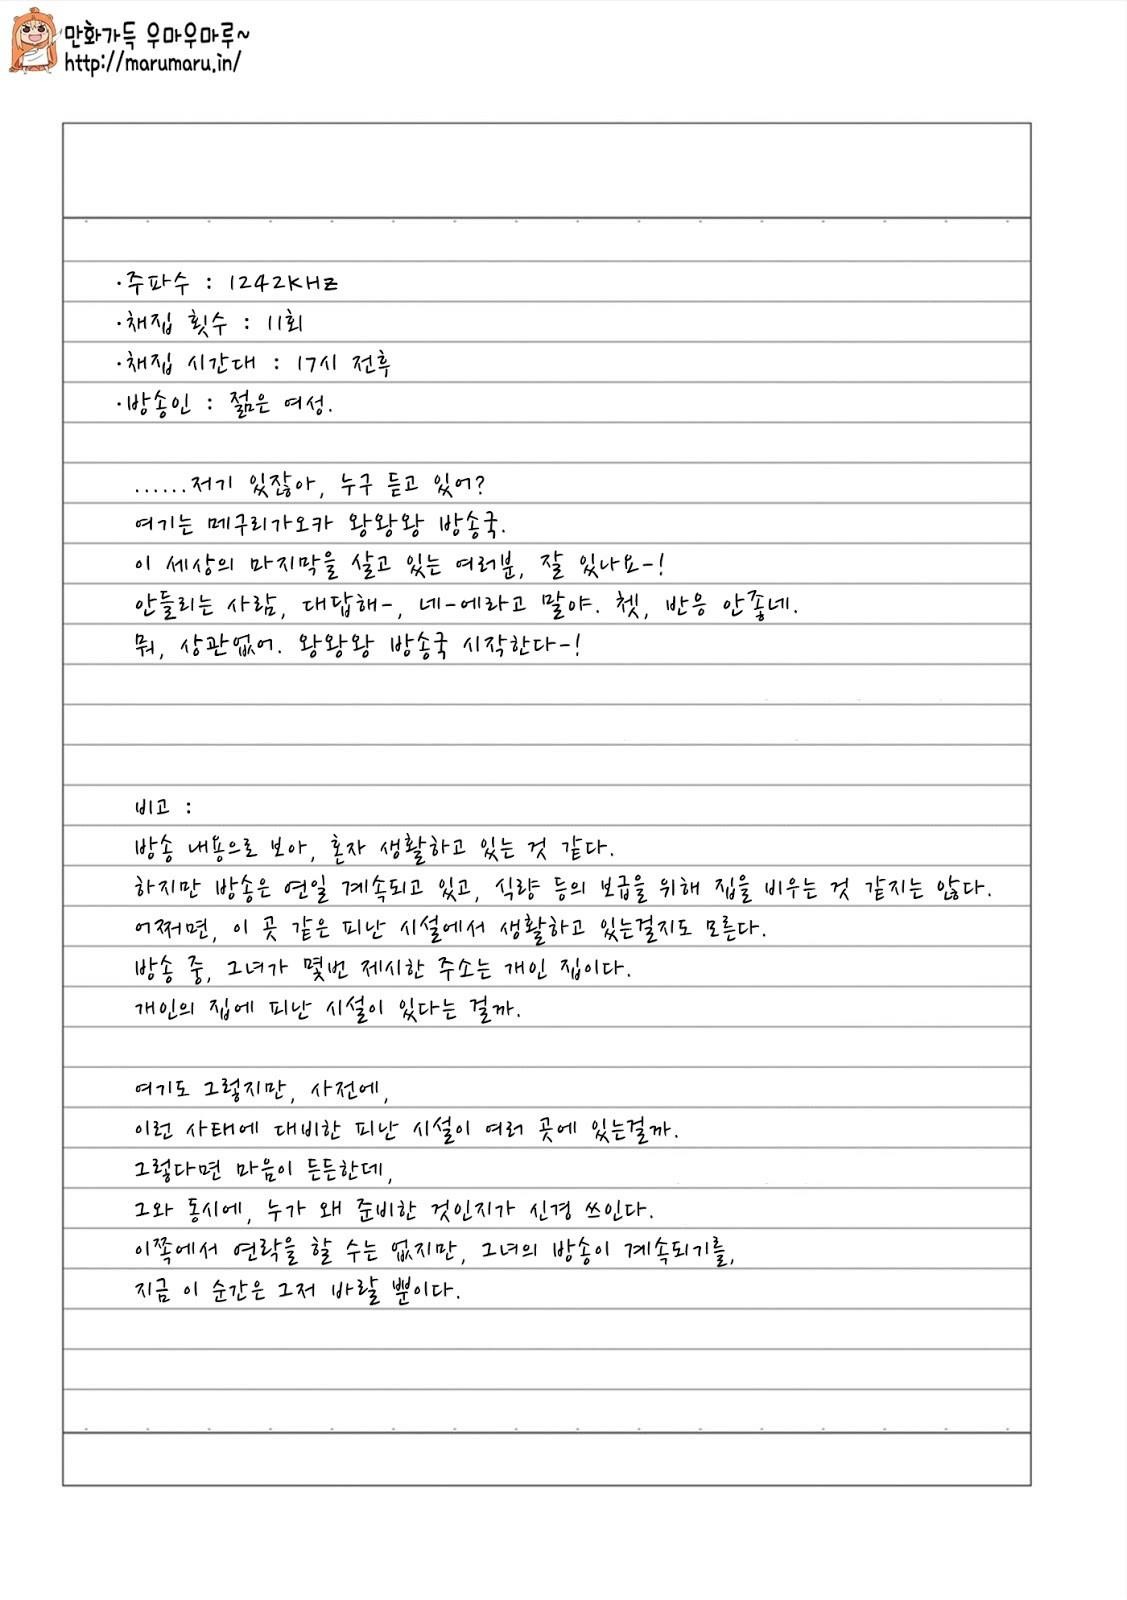 만화가득 우마우마루~
http://marumaru.in/
·주파수 : 1242KHz
·채집 횟수 : 11회
·채집 시간대 : 17시 전후
·방송인 : 젊은 여성.
......저기 있잖아, 누구 듣고 있어?
여기는 메구리가오카 왕왕왕 방송국.
이 세상의 마지막을 살고 있는 여러분, 잘 있나요-!
안들리는 사람, 대답해-, 네-에라고 말야. 쳇, 반응 안좋네.
뭐, 상관없어. 왕왕왕 방송국 시작한다-!
비고 :
방송 내용으로 보아, 혼자 생활하고 있는 것 같다.
하지만 방송은 연일 계속되고 있고, 식량 등의 보급을 위해 집을 비우는 것 같지는 않다.
어쩌면, 이 곳 같은 피난 시설에서 생활하고 있는걸지도 모른다.
방송 중, 그녀가 몇번 제시한 주소는 개인 집이다.
개인의 집에 피난 시설이 있다는 걸까.
여기도 그렇지만, 사전에,
이런 사태에 대비한 피난 시설이 여러 곳에 있는걸까.
그렇다면 마음이 든든한데,
그와 동시에, 누가 왜 준비한 것인지가 신경 쓰인다.
이쪽에서 연락을 할 수는 없지만, 그녀의 방송이 계속되기를,
지금 이 순간은 그저 바랄 뿐이다.